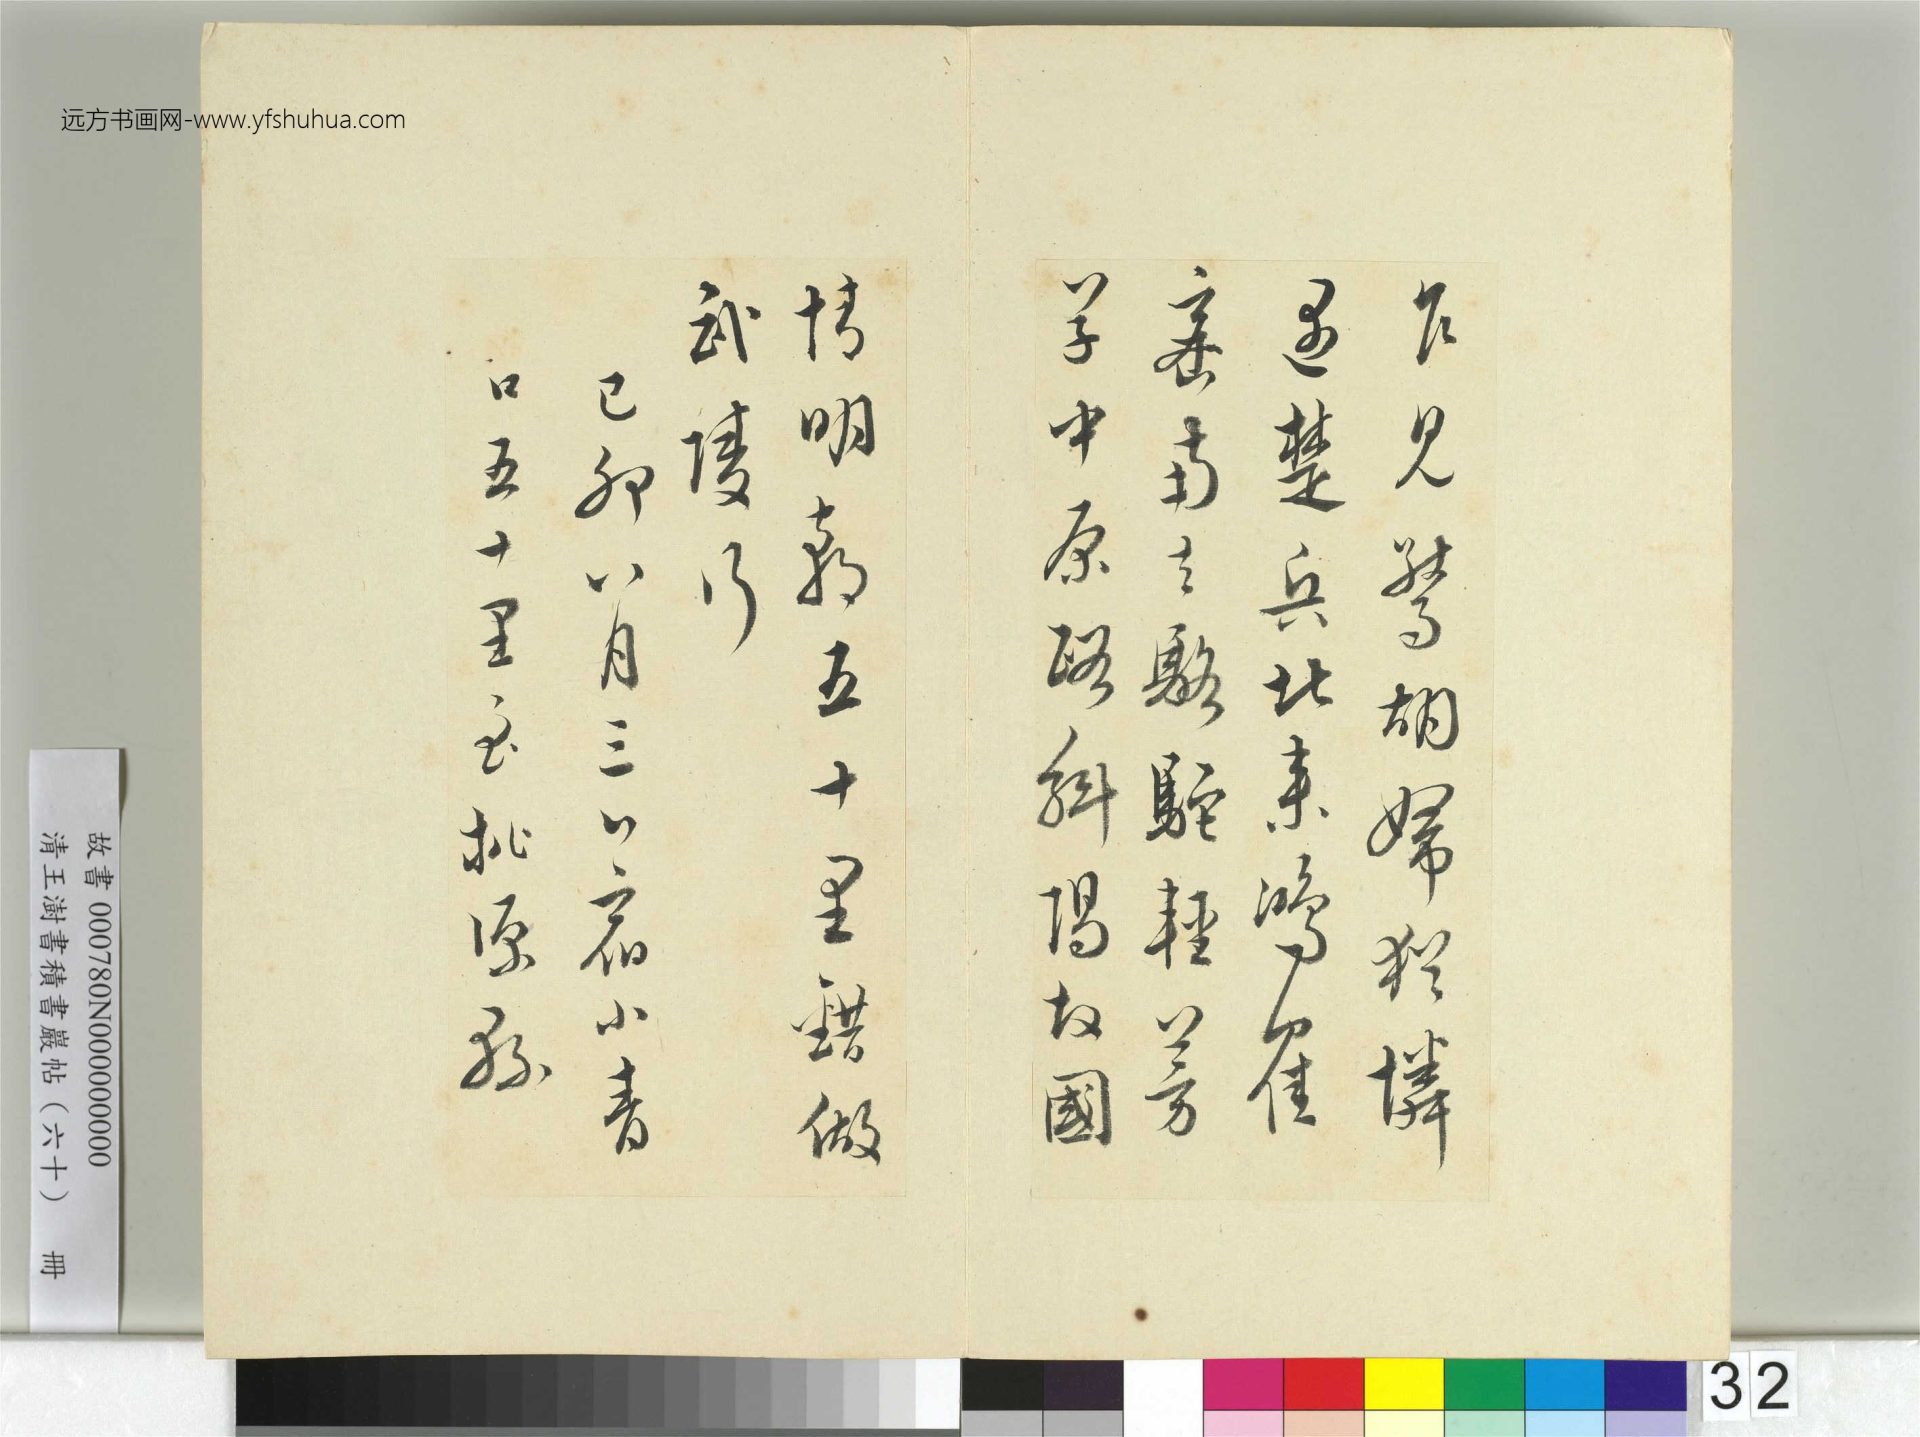 远方书画网-www.yfshuhua.com
乍見驚胡婦猶憐
遇楚兵北来鴻雁
密南去駱駝輕芳
草中原路斜陽故國
情明朝五十里錯做
武陵行
己卯八月三日宿小青
口五十里至桃源縣
故書 000780N000000000
清王澍書積書巖帖（六十） 冊
32